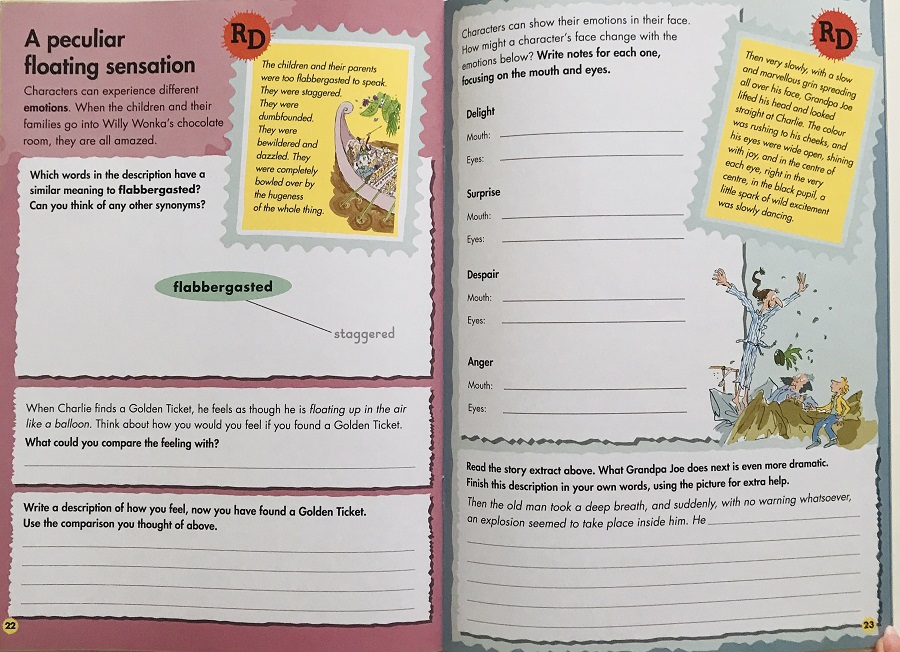 A peculiar
floating sensation
Characters can experience different
emotions. When the children and their
families go into Willy Wonka's chocolate
room, they are all amazed.
RD
The children and their parents
were too flabbergasted to speak.
They were staggered.
They were
dumbfounded.
They were
bewildered and
dazzled. They
were completely
bowled over by
the hugeness
of the whole thing.
Which words in the description have a
similar meaning to flabbergasted?
Can you think of any other synonyms?
flabbergasted
staggered
When Charlie finds a Golden Ticket, he feels as though he is floating up in the air
like a balloon. Think about how you would you feel if you found a Golden Ticket.
What could you compare the feeling with?
Write a description of how you feel, now you have found a Golden Ticket.
Use the comparison you thought of above.
22
Characters can show their emotions in their face.
How might a character's face change with the
emotions below? Write notes for each one,
focusing on the mouth and eyes.
Delight
Mouth:
Eyes:
Surprise
Mouth:
Eyes:
Despair
Mouth:
Eyes:
Anger
Mouth:
Eyes:
RD
Then very slowly, with a slow
and marvellous grin spreading
all over his face, Grandpa Joe
lifted his head and looked
straight at Charlie. The colour
was rushing to his cheeks, and
his eyes were wide open, shining
with joy, and in the centre of
each eye, right in the very
centre, in the black pupil, a
little spark of wild excitement
was slowly dancing.
Read the story extract above. What Grandpa Joe does next is even more dramatic.
Finish this description in your own words, using the picture for extra help.
Then the old man took a deep breath, and suddenly, with no warning whatsoever,
an explosion seemed to take place inside him. He
23